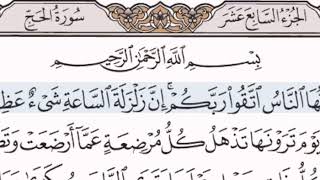 الجُزْءُ السَّابِعَ عَشَرَ
سُورَةُ الحَجِّ
بِسْمِ اللَّهِ الرَّحْمَٰنِ الرَّحِيمِ
ـهَا النَّاسُ اتَّقُوا رَبَّكُمْ ۚ إِنَّ زَلْزَلَةَ السَّاعَةِ شَىْءٌ عَظِـ
يَوْمَ تَرَوْنَهَا تَذْهَلُ كُلُّ مُرْضِعَةٍ عَمَّا أَرْضَعَتْ وَتَضَـ